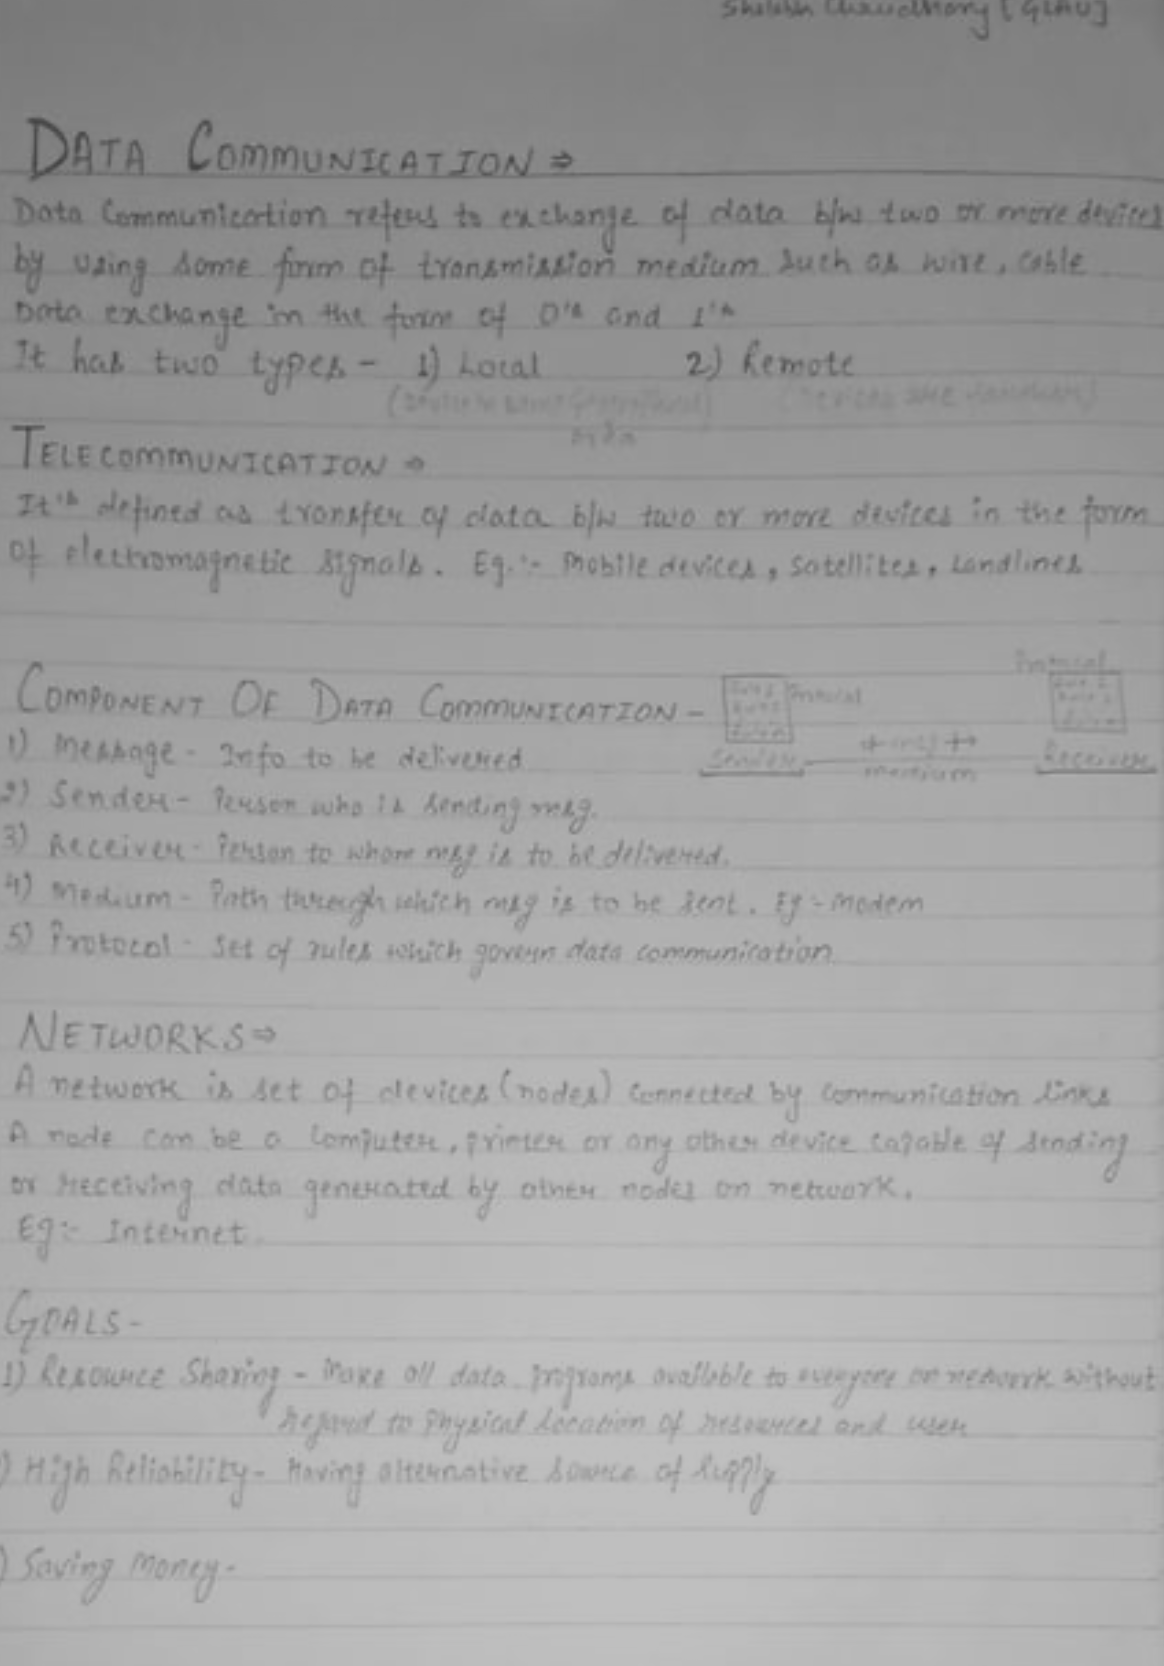 Chaudhary [GLAU]
DATA COMMUNICATION ⇒
Data Communication refers to exchange of data b/w two or more devices
by using some form of transmission medium such as wire, cable
Data exchange in the form of 0's and 1's
It has two types - 1) Local 2) Remote
(Devices are
TELECOMMUNICATION ⇒
It's defined as transfer of data b/w two or more devices in the form
of electromagnetic signals. Eg.:- Mobile devices, Satellites, Landlines
COMPONENT OF DATA COMMUNICATION -
Protocol Protocol
Sender msg Receiver
medium
1) Message - Info to be delivered
2) Sender - Person who is sending msg.
3) Receiver - Person to whom msg is to be delivered.
4) Medium - Path through which msg is to be sent. Eg - modem
5) Protocol - Set of rules which govern data communication
NETWORKS ⇒
A network is set of devices (nodes) connected by communication links
A node can be a computer, printer or any other device capable of sending
or receiving data generated by other nodes on network.
Eg:- Internet.
GOALS -
1) Resource Sharing - Make all data programs available to everyone on network without
regard to physical location of resources and user
) High Reliability - Having alternative source of supply
) Saving Money -